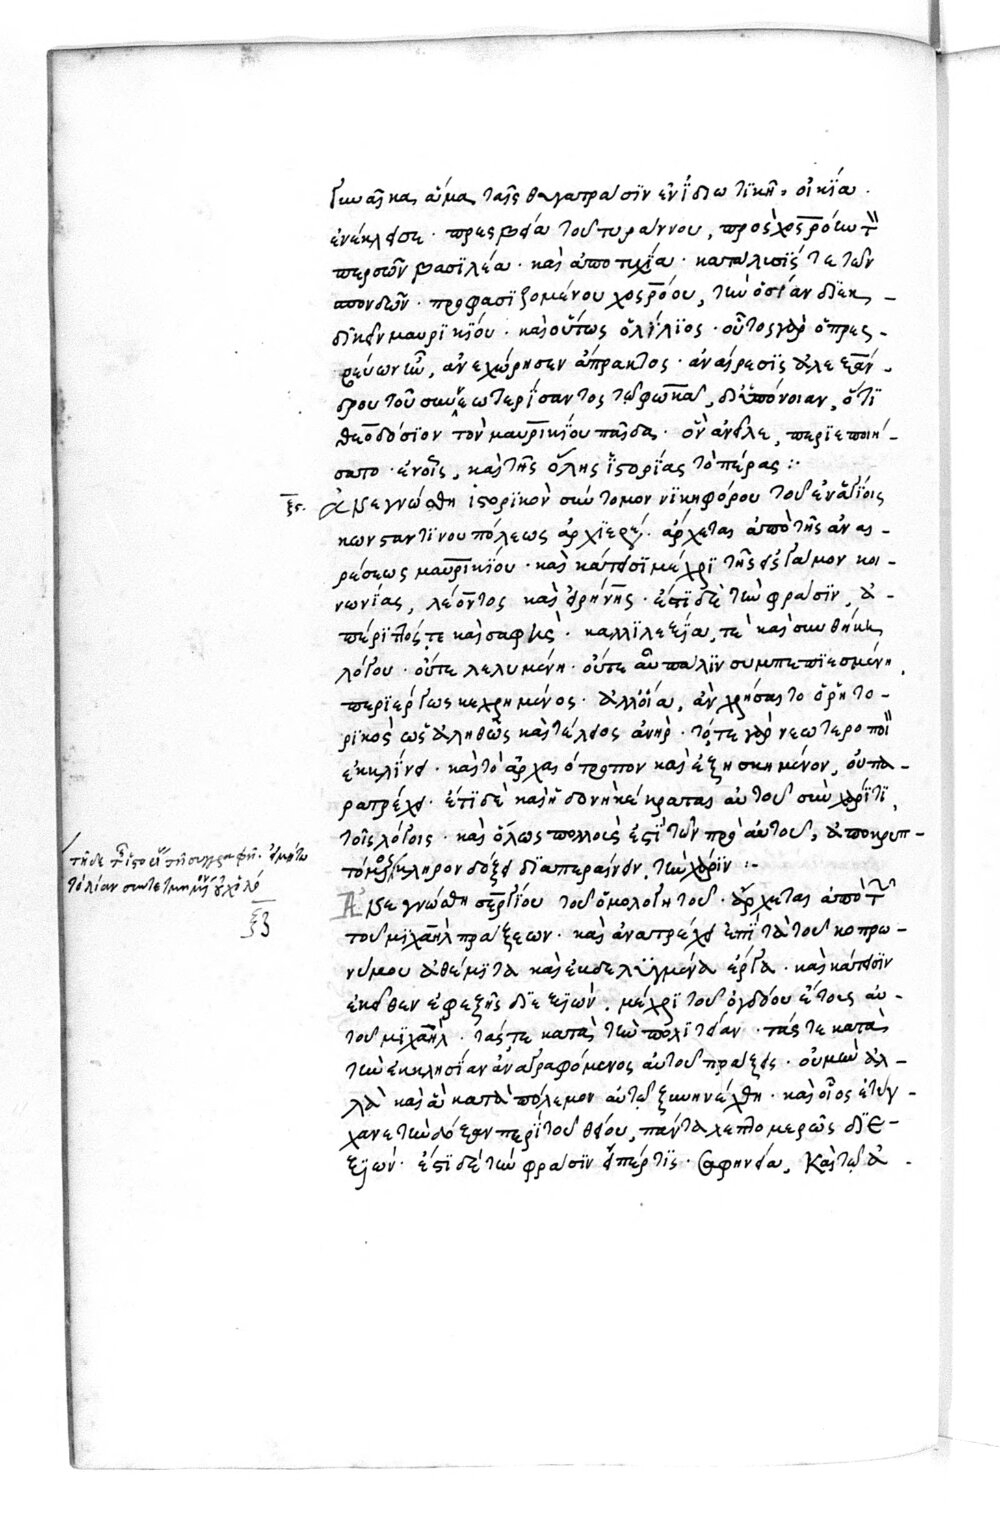 γυναῖκα ἅμα ταῖς θυγατράσιν ἐν ἰδιωτικῇ οἰκίᾳ.
ἐνέκλεισε· πρεσβεία τοῦ τυράννου, πρὸς χοσρόην τὸν
περσῶν βασιλέα· καὶ ἀποτυχία· κατάλυσίς τε τῶν
σπονδῶν· προφασιζομένου χοσρόου, τὴν ὁσίαν διεκ-
δικεῖν μαυρικίου· καὶ οὕτως ὁ λίλιος· οὗτος γὰρ ὁ πρεσ-
βεύων ἦν, ἀνεχώρησεν ἄπρακτος· ἀναίρεσις ἀλεξάν-
δρου τοῦ συννεωτερίσαντος τῷ φωκᾷ, δι' ὑπόνοιαν, ὅτι
θεοδόσιον τὸν μαυρικίου παῖδα· ὃν ἀνεῖλε, περιεποιή-
σατο· ἐν οἷς, καὶ τῆς ὅλης ἱστορίας τὸ πέρας:
ξς. Ἀνεγνώσθη ἱστορικὸν σύντομον νικηφόρου τοῦ ἐν ἁγίοις
κωνσταντινουπόλεως ἀρχιερέως· ἄρχεται ἀπὸ τῆς ἀναι-
ρέσεως μαυρικίου· καὶ κάτεισι μέχρι τῆς εἰς γάμον κοι-
νωνίας, λέοντος καὶ εἰρήνης· ἔστι δὲ τὴν φράσιν, ἀ-
πέριττός τε καὶ σαφής· καλλιλεξίᾳ τε καὶ συνθήκῃ
λόγου· οὔτε λελυμένῃ· οὔτε αὖ πάλιν συμπεπιεσμένῃ
περιέργως κεχρημένος· ἀλλ' οἵᾳ, ἂν χρήσαιτο ὁ ῥητο-
ρικὸς ὡς ἀληθῶς καὶ τέλειος ἀνήρ· τό τε γὰρ νεωτεροποι
ἐκκλίνει· καὶ τὸ ἀρχαιότροπον καὶ ἐξησκημένον, οὐ πα-
ρατρέχει· ἔτι δὲ καὶ ἡδονὴ κέκραται αὐτοῦ σὺν χάριτι
τοῖς λόγοις· καὶ ὅλως πολλούς ἐστι τῶν πρὸ αὐτοῦ, ἀποκρυπ-
τόμενος κλῆρον δόξει διαπεραίνειν, τὴν χάριν:
τῆσδε τῆς ἱστορίας τῇ συγγραφῇ· εἰ μή τῳ
τὸ λίαν συντετμημένον οὐχ ὅλο
ξζ
Ἀνεγνώσθη σεργίου τοῦ ὁμολογητοῦ· ἄρχεται ἀπὸ τῶν
τοῦ μιχαὴλ πράξεων· καὶ ἀνατρέχει ἐπὶ τὰ τοῦ κοπρω-
νύμου ἀθέμιτα καὶ ἐκδεδιῃτημένα ἔργα· καὶ κάτεισιν
ἐκεῖθεν ἐφεξῆς διεξιών, μέχρι τοῦ ὀγδόου ἔτους αὐ-
τοῦ μιχαὴλ· τάς τε κατὰ τὴν πολιτείαν· τάς τε κατὰ
τὴν ἐκκλησίαν ἀναγραφόμενος αὐτοῦ πράξεις· οὐ μὴν ἀλ-
λὰ καὶ ἃ κατὰ πόλεμον αὐτῷ ξυνηνέχθη· καὶ οἷος ἐτύγ-
χανε τὴν δόξαν περὶ τοῦ θείου, πάντα λεπτομερῶς διε-
ξιών· ἔστι δὲ τὴν φράσιν εἴπερ τις· σαφηνείᾳ, καὶ τῷ ἀ-